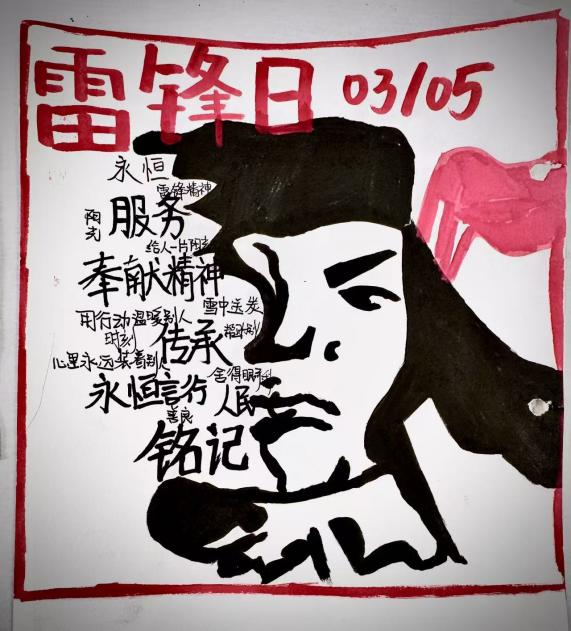 雷锋日 03/05
永恒
雷锋精神
阳光
服务
给人一片阳光
奉献精神
雪中送炭
用行动温暖别人
时刻
传承
心里永远装着别人
舍得
永恒言行
人民
善良
铭记